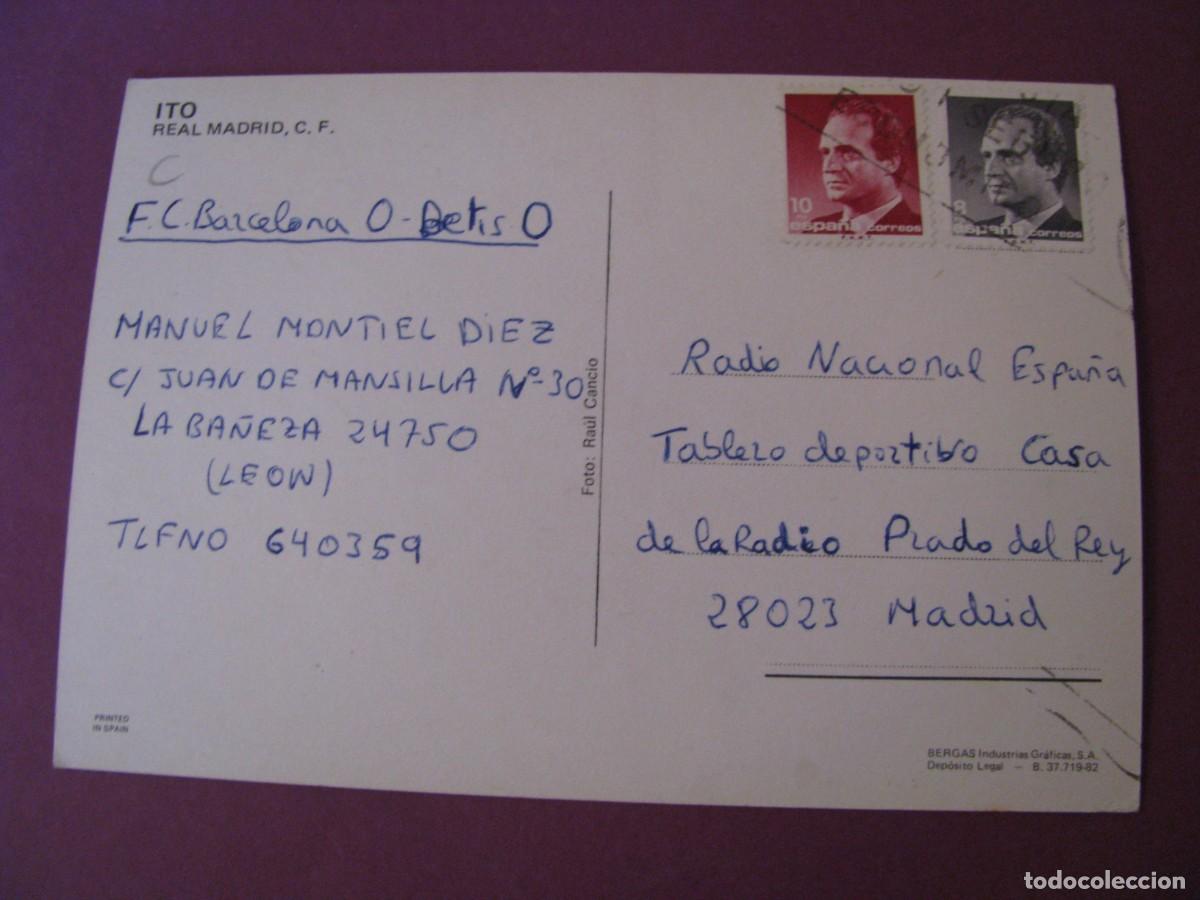 ITO
REAL MADRID, C. F.
C
F.C. Barcelona 0 - Betis 0
MANUEL MONTIEL DIEZ
C/ JUAN DE MANSILLA Nº-30
LA BAÑEZA 24750
(LEON)
TLFNO 640359
PRINTED
IN SPAIN
Foto: Raúl Cancio
10
españa correos
8
españa correos
Radio Nacional España
Tablero deportivo Casa
de la Radio Prado del Rey
28023 Madrid
BERGAS Industrias Gráficas, S.A.
Depósito Legal – B. 37.719-82
todocoleccion